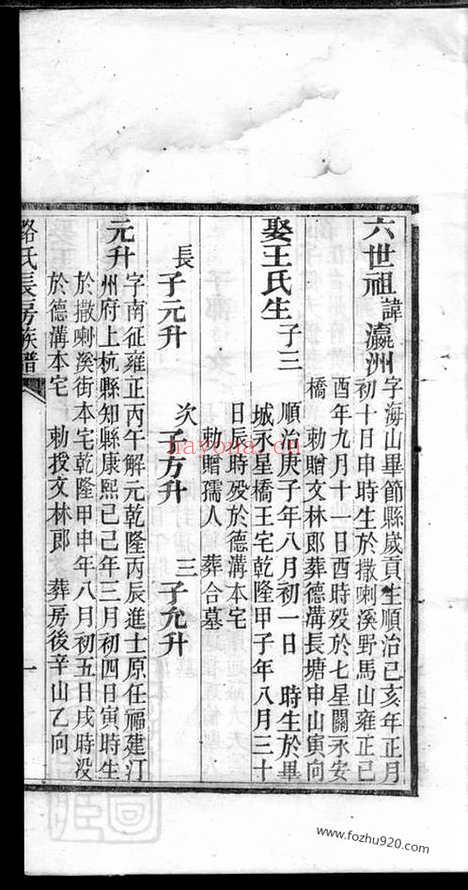 六世祖諱瀛洲 字海山畢節縣歲貢生順治己亥年正月
初十日申時生於撒喇溪野馬山雍正己
酉年九月十一日酉時歿於七星關永安
橋 勅贈文林郎葬德溝長塘申山寅向
娶王氏生子三 順治庚子年八月初一日 時生於畢
城永星橋王宅乾隆甲子年八月三十
日辰時歿於德溝本宅
勅贈孺人 葬合墓
長子元升 次子方升 三子允升
元升 字南征雍正丙午解元乾隆丙辰進士原任福建汀
州府上杭縣知縣康熙己巳年三月初四日寅時生
於撒喇溪街本宅乾隆甲申年八月初五日戌時没
於德溝本宅 勅授文林郎 葬房後辛山乙向
路氏長房族譜
一
nayona.cn
www.fozhu920.com